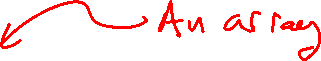 An array